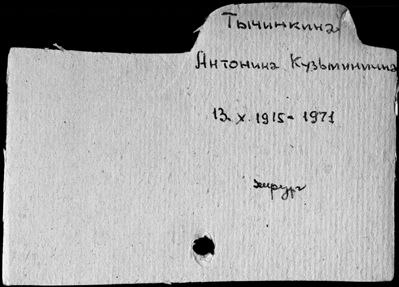 Тычинкина
Антонина Кузьминична
13. X. 1915 - 1971
хирург